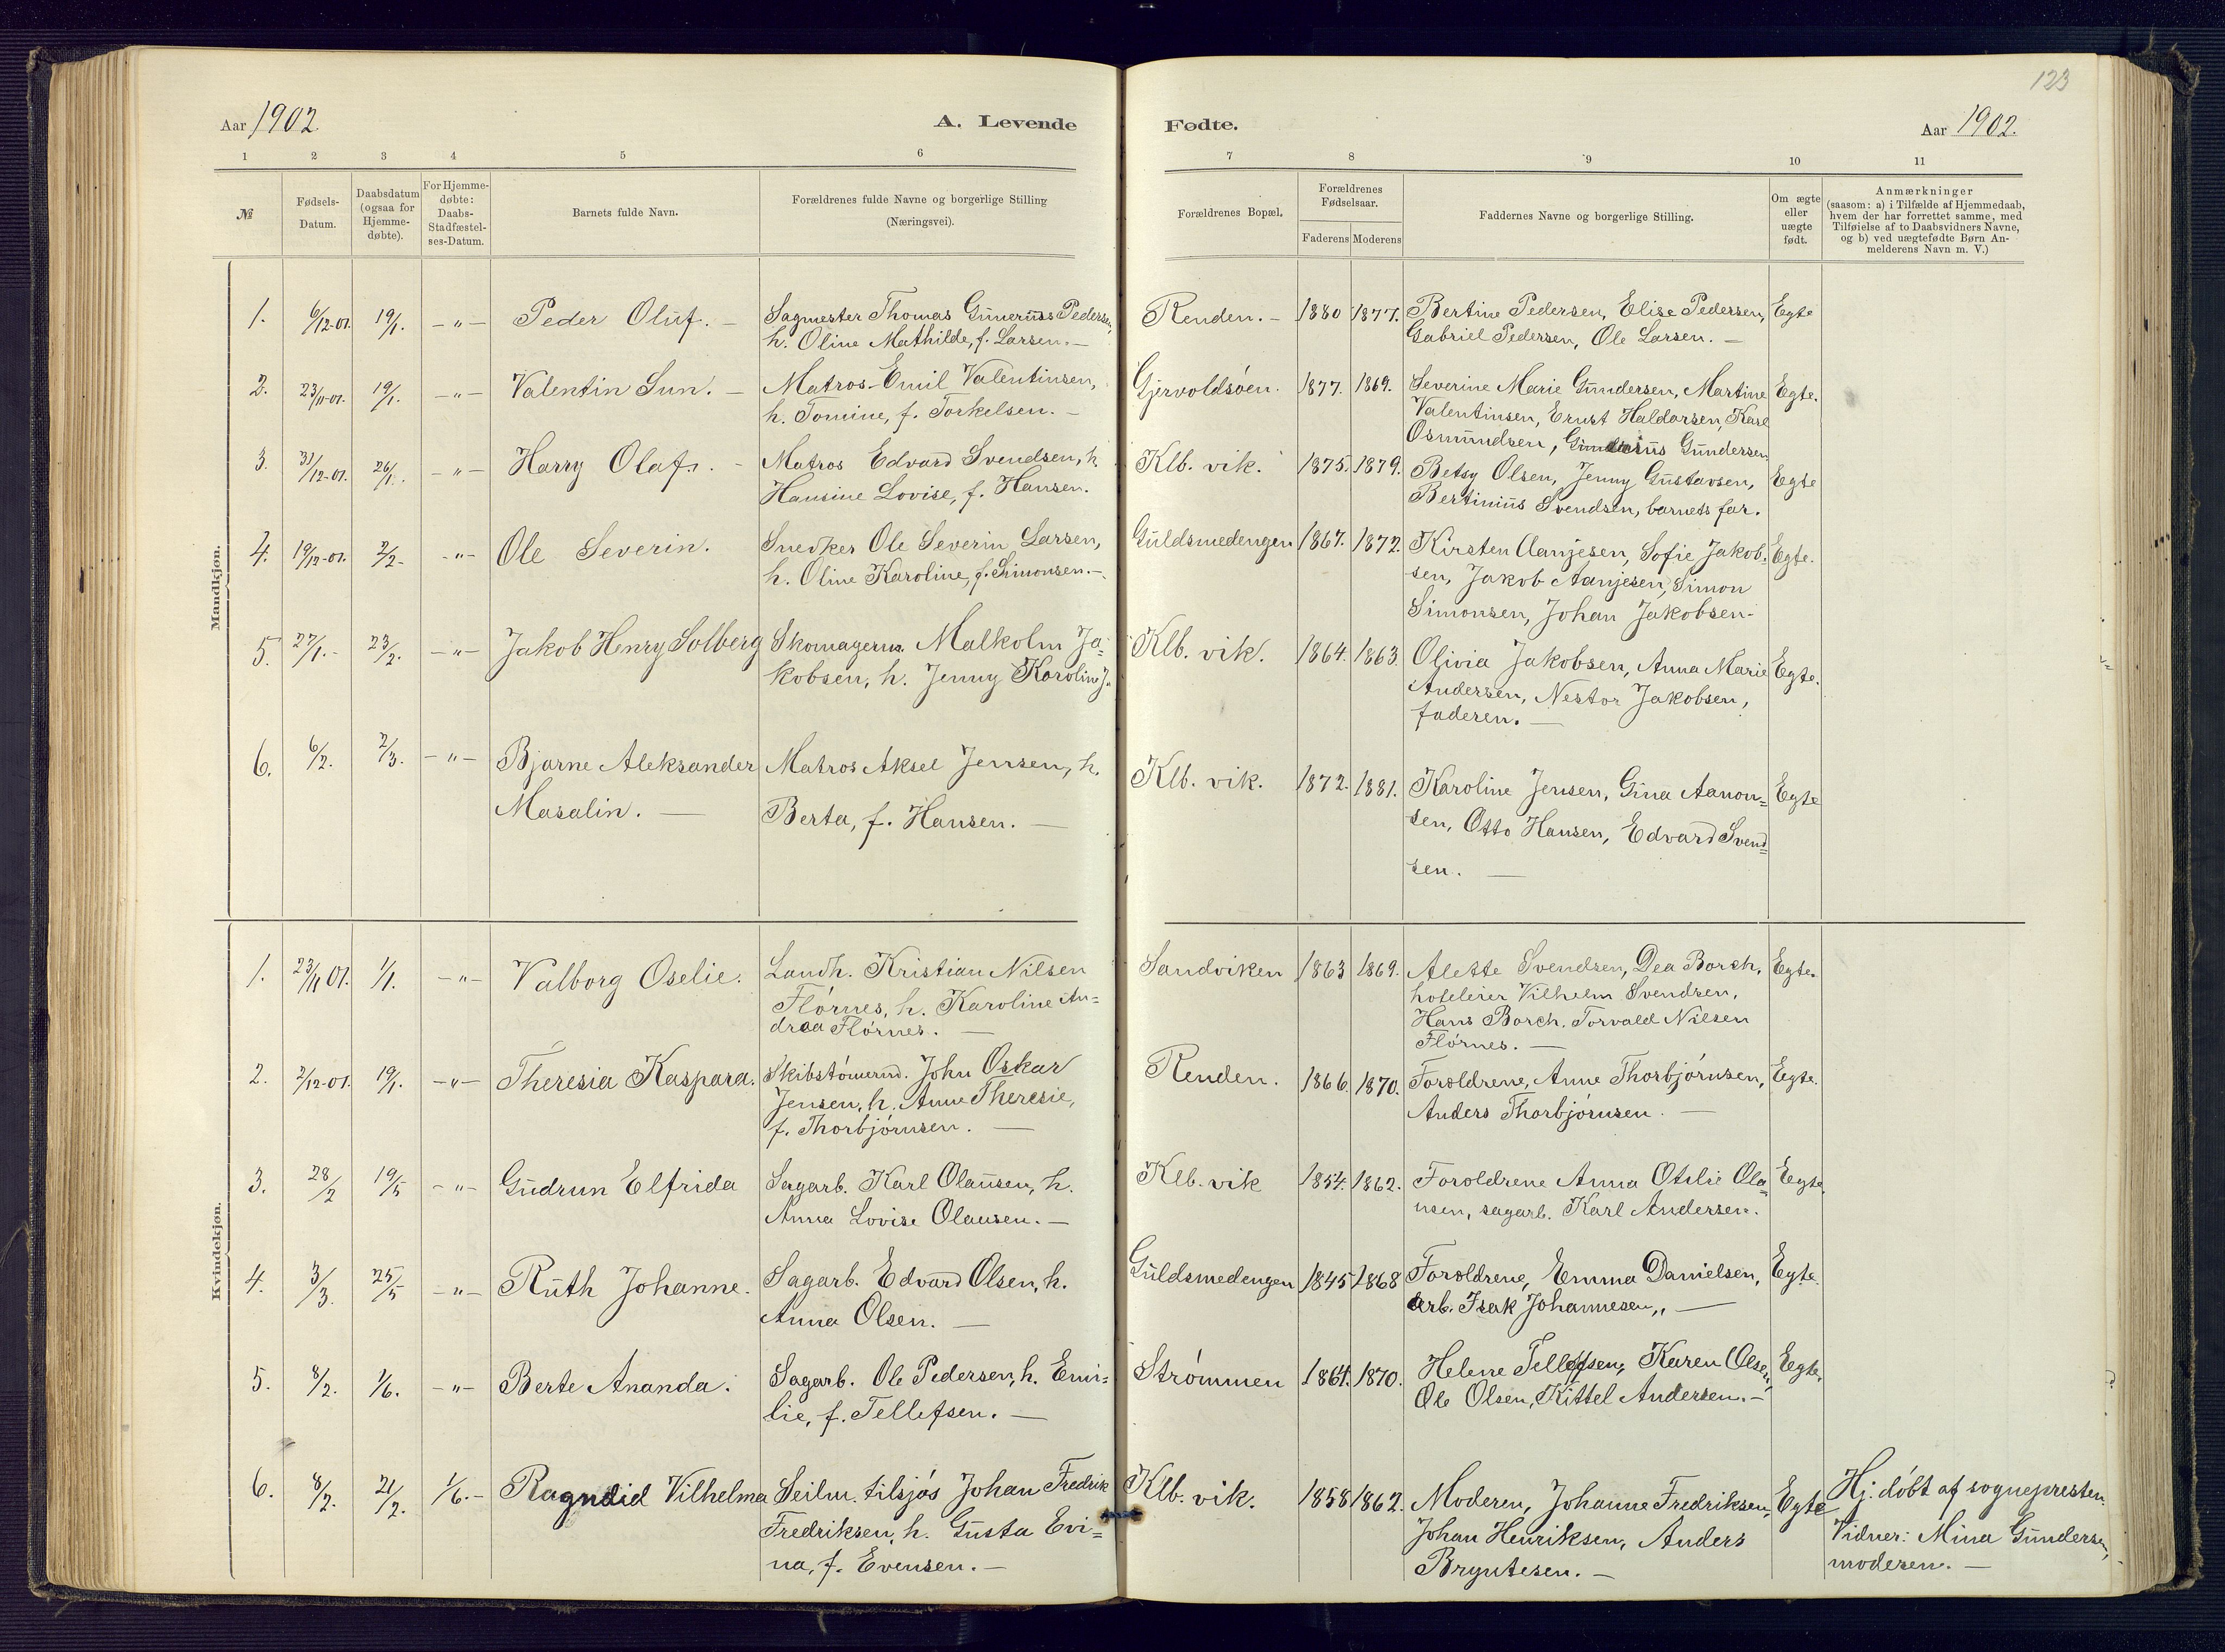 123
Aar 1902.
A. Levende
Fødte.
Aar 1902.
1 2 3 4 5 6 7 8 9 10 11
№
Fødsels-
Datum.
Daabsdatum
(ogsaa for
Hjemme-
døbte).
For Hjemme-
døbte:
Daabs-
Stadfæstel-
ses-Datum.
Barnets fulde Navn.
Forældrenes fulde Navne og borgerlige Stilling
(Næringsvei).
Forældrenes Bopæl.
Forældrenes
Fødselsaar.
Faderens Moderens
Faddernes Navne og borgerlige Stilling.
Om ægte
eller
uægte
født.
Anmærkninger
(saasom: a) i Tilfælde af Hjemmedaab,
hvem der har forrettet samme, med
Tilføielse af to Daabsvidners Navne,
og b) ved uægtefødte Børn An-
melderens Navn m. V.)
Mandkjøn.
1. 6/12-01. 19/1. -„- Peder Oluf. — Sagmester Thomas Gunerius Pedersen,
h. Oline Mathilde, f. Larsen. —
Renden. — 1880 1877. Bertine Pedersen, Elise Pedersen, Egte
Gabriel Pedersen, Ole Larsen. —
2. 23/11-01. 19/1. -„- Valentin Sun. — Matros Emil Valentinsen,
h. Tomine, f. Torkelsen. —
Gjervoldsøen. 1877. 1869. Severine Marie Gundersen, Martine Egte.
Valentinsen, Ernst Haldorsen, Karl
Osmundsen, Gunderius Gundersen
3. 31/12-01. 26/1. -„- Harry Olaf. — Matros Edvard Svendsen, h.
Hansine Lovise, f. Hansen.
Klb. vik. 1875. 1879. Betsy Olsen, Jenny Gustavsen, Egte
Bertinius Svendsen, barnets far.
4. 19/12-01. 2/2- -„- Ole Severin. Snedker Ole Severin Larsen,
h. Oline Karoline, f. Simonsen. —
Guldsmedengen 1867. 1872. Kirsten Aanjesen, Sofie Jakob- Egte.
sen, Jakob Aanjesen, Simon
Simonsen, Johan Jakobsen.
5. 27/1.- 23/2. -„- Jakob Henry Solberg Skomagerm. Malkolm Ja=
kobsen, h. Jenny Karoline J.
Klb. vik. 1864. 1863. Olivia Jakobsen, Anna Marie Egte.
Andersen, Nestor Jakobsen,
faderen. —
6. 6/2. 2/3. -„- Bjarne Aleksander Matros Aksel Jensen, h.
Masalin. — Berta, f. Hansen. —
Klb. vik. 1872. 1881. Karoline Jensen, Gina Aanon= Egte
sen, Otto Hansen, Edvard Svend=
sen. —
Kvindekjøn.
1. 23/11 01. 1/1. -„- Valborg Oselie. Landh. Kristian Nilsen
Flørnes, h. Karoline An=
drea Flørnes. —
Sandviken 1863 1869. Alette Svendsen, Dea Borch, Egte.
hoteleier Vilhelm Svendsen,
Hans Borch. Torvald Nilsen
Flørnes. —
2. 2/12-01. 19/1. -„- Theresia Kaspara. Skibstømermd. John Oskar
Jensen, h. Anne Theresie,
f. Thorbjørnsen. —
Renden. 1866. 1870. Foroldrene, Anne Thorbjørnsen, Egte.
Anders Thorbjørnsen. —
3. 28/2 19/5 -„- Gudrun Elfrida Sagarb. Karl Olausen, h.
Anna Lovise Olausen. —
Klb. vik 1854. 1862. Foroldrene Anna Otilie Ola= Egte.
usen, sagarb. Karl Andersen.
4. 3/3. 25/5 -„- Ruth Johanne. Sagarb. Edvard Olsen, h.
Anna Olsen. —
Guldsmedengen 1845 1868 Foroldrene, Emma Danielsen, Egte.
arb. Isak Johannesen,, —
5. 8/2. 1/6. -„- Berte Ananda. Sagarb. Ole Pedersen, h. Emi=
lie, f. Tellefsen. —
Strømmen 1864. 1870. Helene Tellefsen, Karen Olsen, Egte.
Ole Olsen, Kittel Andersen. —
6. 8/2. 21/2. 1/6.- Ragndid Vilhelma Seilm. tilsjøs Johan Fredrik
Fredriksen, h. Gusta Evi=
na, f. Evensen. —
Klb. vik. 1858 1862. Moderen, Johanne Fredriksen, Egte
Johan Henriksen, Anders
Bryntesen. —
Hj. døbt af sognepresten.
Vidner: Mina Gundersen,
moderen. —